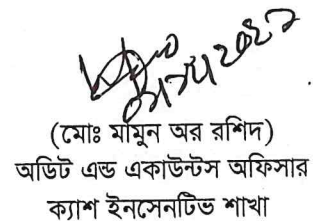 (মোঃ মামুন অর রশিদ)
অডিট এন্ড একাউন্টস অফিসার
ক্যাশ ইনসেনটিভ শাখা